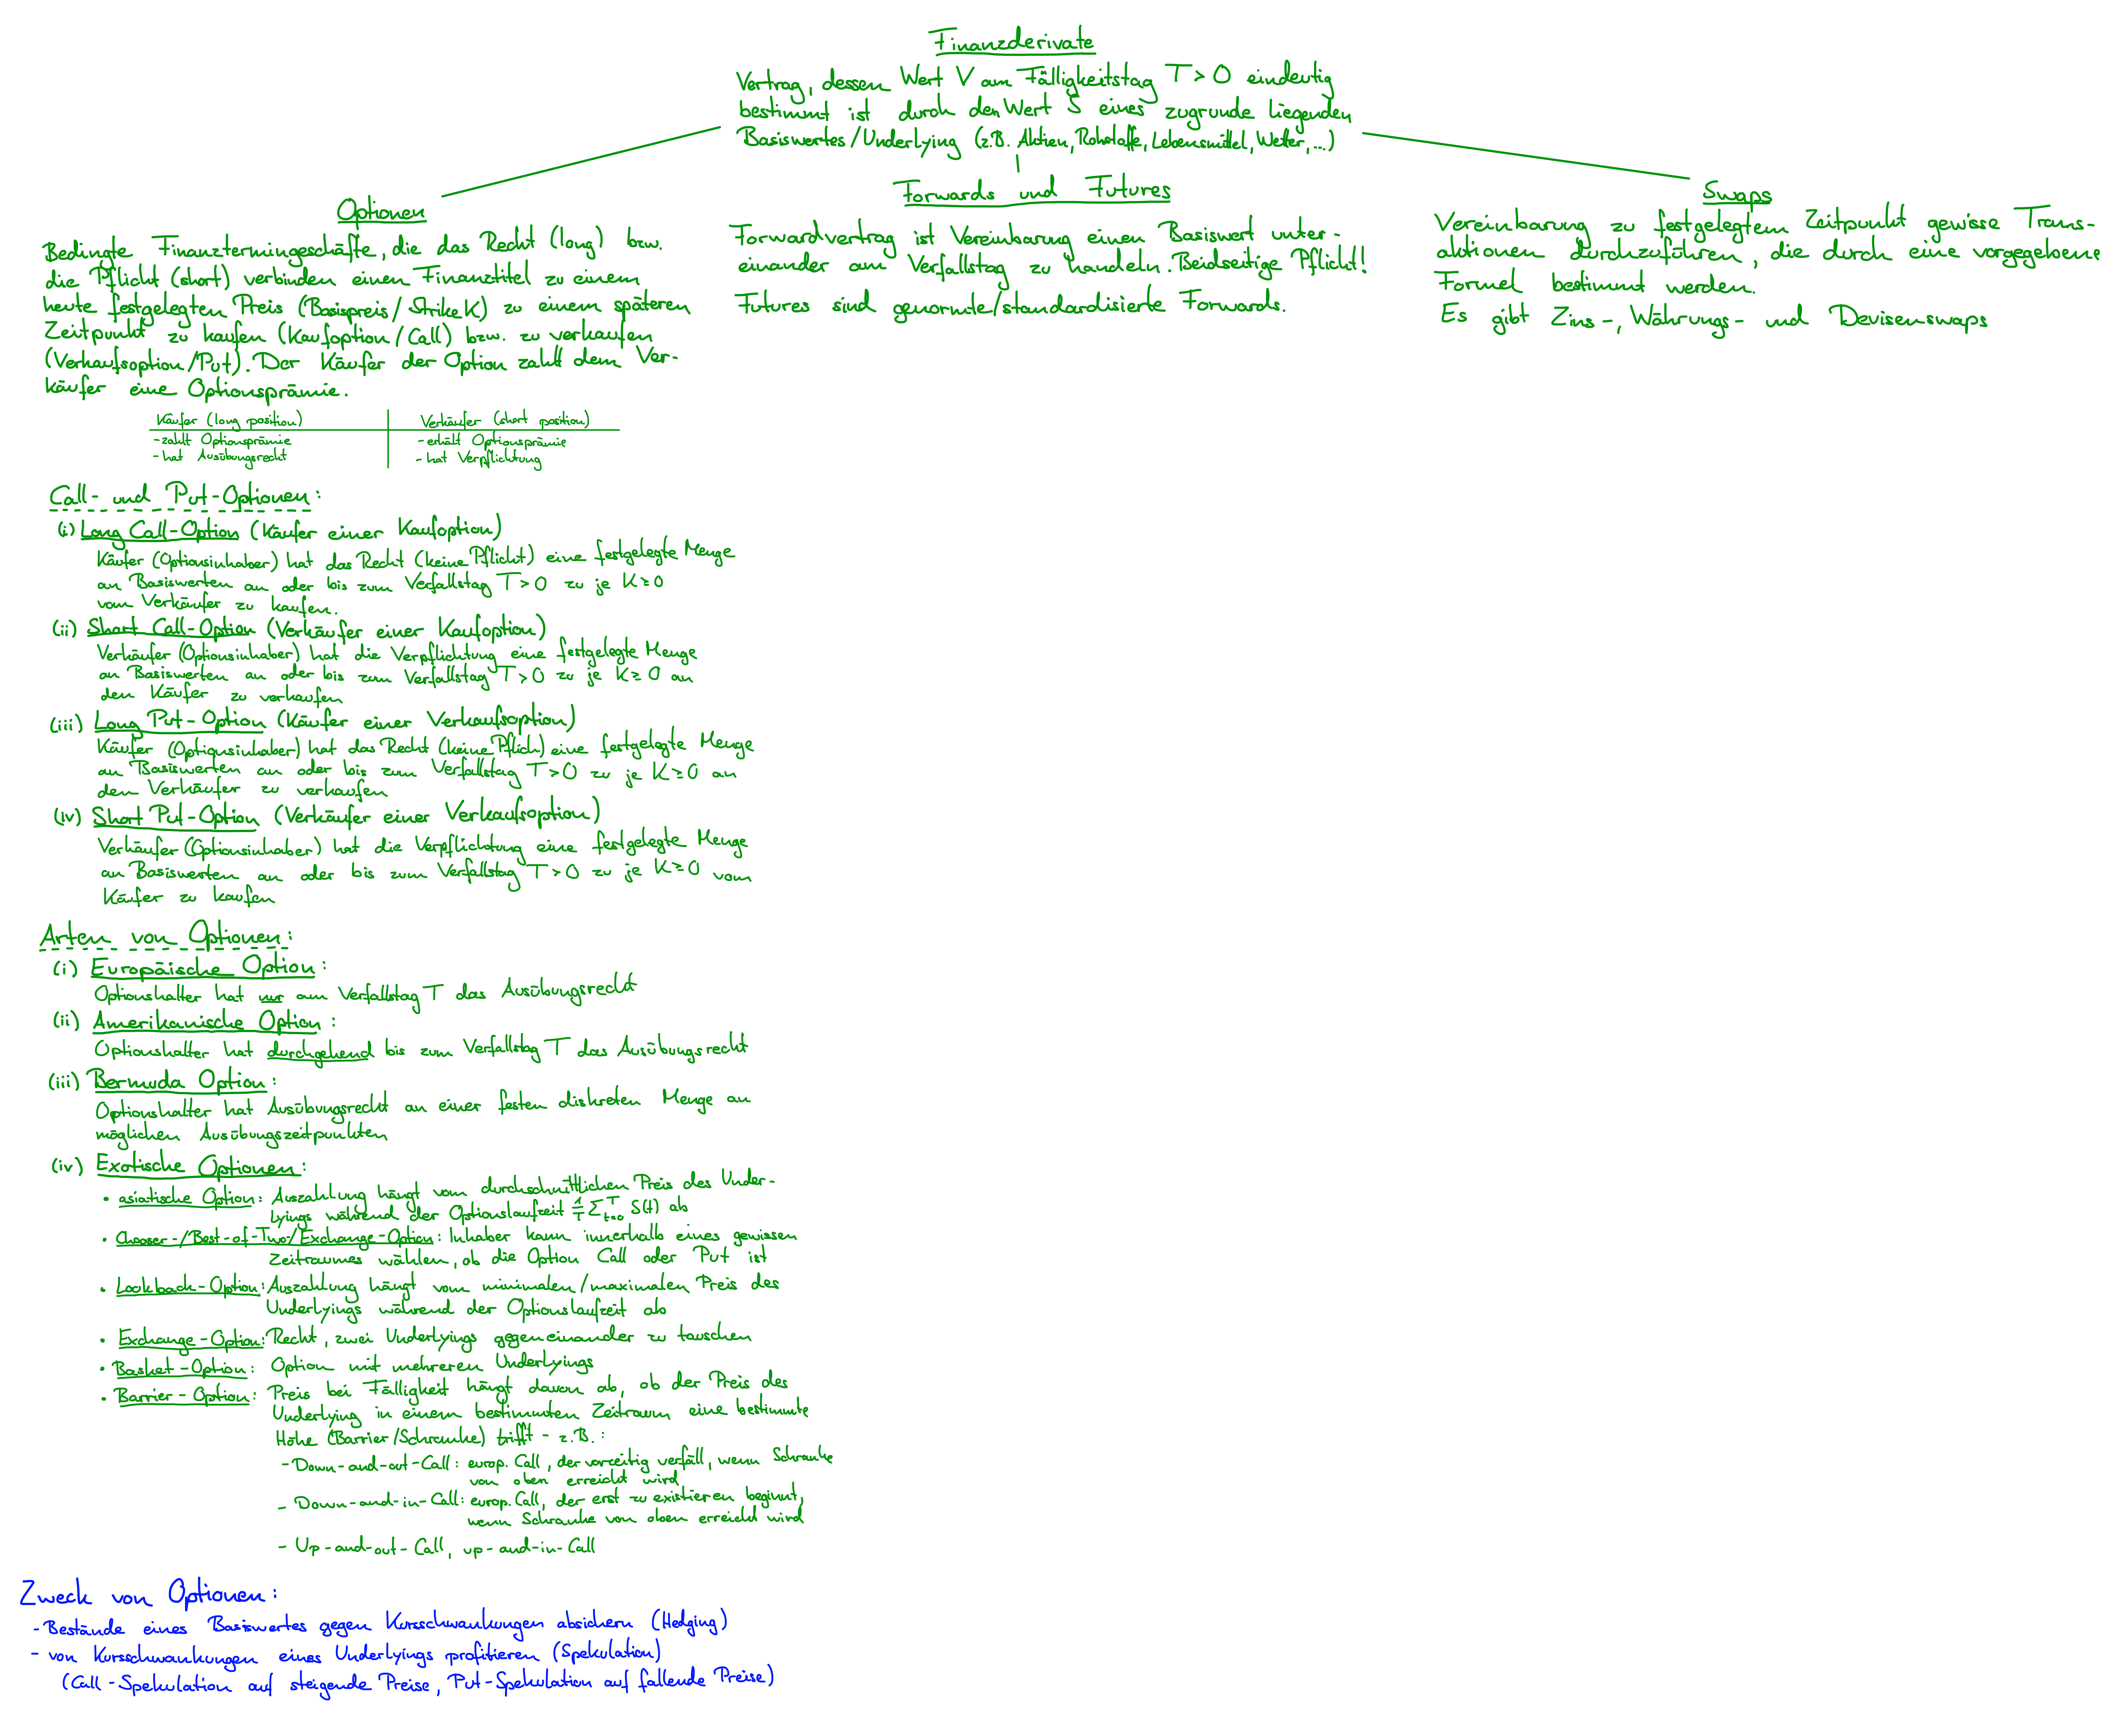 Finanzderivate
Vertrag, dessen Wert V am Fälligkeitstag T > 0 eindeutig
bestimmt ist durch den Wert S eines zugrunde liegenden
Basiswertes/Underlying (z.B. Aktien, Rohstoffe, Lebensmittel, Wetter, ...)
Optionen
Bedingte Finanztermingeschäfte, die das Recht (long) bzw.
die Pflicht (short) verbinden einen Finanztitel zu einem
heute festgelegten Preis (Basispreis/Strike K) zu einem späteren
Zeitpunkt zu kaufen (Kaufoption/Call) bzw. zu verkaufen
(Verkaufsoption/Put). Der Käufer der Option zahlt dem Ver-
käufer eine Optionsprämie.
Käufer (long position) Verkäufer (short position)
-zahlt Optionsprämie -erhält Optionsprämie
-hat Ausübungsrecht -hat Verpflichtung
Call- und Put-Optionen:
(i) Long Call-Option (Käufer einer Kaufoption)
Käufer (Optionsinhaber) hat das Recht (keine Pflicht) eine festgelegte Menge
an Basiswerten an oder bis zum Verfallstag T > 0 zu je K ≥ 0
vom Verkäufer zu kaufen.
(ii) Short Call-Option (Verkäufer einer Kaufoption)
Verkäufer (Optionsinhaber) hat die Verpflichtung eine festgelegte Menge
an Basiswerten an oder bis zum Verfallstag T > 0 zu je K ≥ 0 an
den Käufer zu verkaufen
(iii) Long Put-Option (Käufer einer Verkaufsoption)
Käufer (Optionsinhaber) hat das Recht (keine Pflich) eine festgelegte Menge
an Basiswerten an oder bis zum Verfallstag T > 0 zu je K ≥ 0 an
den Verkäufer zu verkaufen
(iv) Short Put-Option (Verkäufer einer Verkaufsoption)
Verkäufer (Optionsinhaber) hat die Verpflichtung eine festgelegte Menge
an Basiswerten an oder bis zum Verfallstag T > 0 zu je K ≥ 0 vom
Käufer zu kaufen
Arten von Optionen:
(i) Europäische Option:
Optionshalter hat nur am Verfallstag T das Ausübungsrecht
(ii) Amerikanische Option:
Optionshalter hat durchgehend bis zum Verfallstag T das Ausübungsrecht
(iii) Bermuda Option:
Optionshalter hat Ausübungsrecht an einer festen diskreten Menge an
möglichen Ausübungszeitpunkten
(iv) Exotische Optionen:
• asiatische Option: Auszahlung hängt vom durchschnittlichen Preis des Under-
lyings während der Optionslaufzeit 1/T ∑_{t=0}^T S(t) ab
• Chooser-/Best-of-Two/Exchange-Option: Inhaber kann innerhalb eines gewissen
Zeitraumes wählen, ob die Option Call oder Put ist
• Lookback-Option: Auszahlung hängt vom minimalen/maximalen Preis des
Underlyings während der Optionslaufzeit ab
• Exchange-Option: Recht, zwei Underlyings gegeneinander zu tauschen
• Basket-Option: Option mit mehreren Underlyings
• Barrier-Option: Preis bei Fälligkeit hängt davon ab, ob der Preis des
Underlying in einem bestimmten Zeitraum eine bestimmte
Höhe (Barrier/Schranke) trifft - z.B.:
- Down-and-out-Call: europ. Call, der vorzeitig verfäll, wenn Schranke
von oben erreicht wird
- Down-and-in-Call: europ. Call, der erst zu existieren beginnt,
wenn Schranke von oben erreicht wird
- Up-and-out-Call, up-and-in-Call
Zweck von Optionen:
- Bestände eines Basiswertes gegen Kursschwankungen absichern (Hedging)
- von Kursschwankungen eines Underlyings profitieren (Spekulation)
(Call-Spekulation auf steigende Preise, Put-Spekulation auf fallende Preise)
Forwards und Futures
Forwardvertrag ist Vereinbarung einen Basiswert unter-
einander am Verfallstag zu handeln. Beidseitige Pflicht!
Futures sind genormte/standardisierte Forwards.
Swaps
Vereinbarung zu festgelegtem Zeitpunkt gewisse Trans-
aktionen durchzuführen, die durch eine vorgegebene
Formel bestimmt werden.
Es gibt Zins-, Währungs- und Devisenswaps